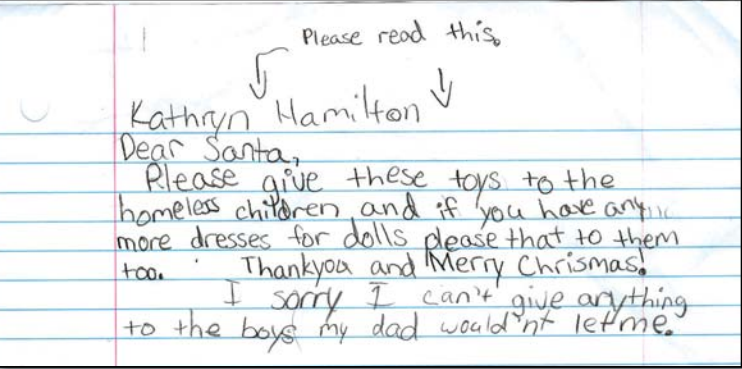 Please read this.
Kathryn Hamilton
Dear Santa,
Please give these toys to the
homeless children and if you have any
more dresses for dolls please that to them
too. Thankyou and Merry Chrismas!
I sorry I can't give anything
to the boys my dad would'nt let me.